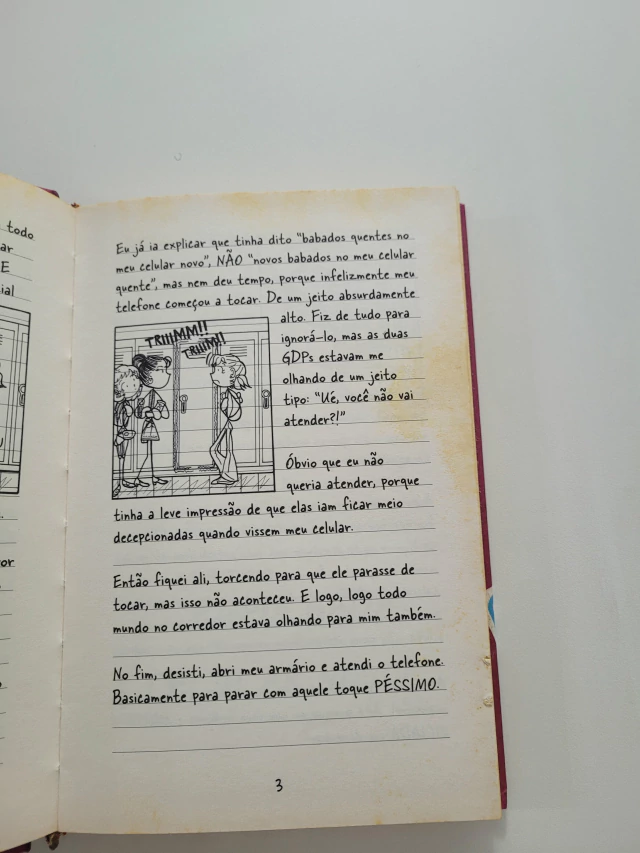 todo
ar
E
ial
or
Eu já ia explicar que tinha dito "babados quentes no
meu celular novo", NÃO "novos babados no meu celular
quente", mas nem deu tempo, porque infelizmente meu
telefone começou a tocar. De um jeito absurdamente
alto. Fiz de tudo para
ignorá-lo, mas as duas
GDPs estavam me
olhando de um jeito
tipo: "Ué, você não vai
atender?!"
TRIIIMM!!
TRIIIM!!
Óbvio que eu não
queria atender, porque
tinha a leve impressão de que elas iam ficar meio
decepcionadas quando vissem meu celular.
Então fiquei ali, torcendo para que ele parasse de
tocar, mas isso não aconteceu. E logo, logo todo
mundo no corredor estava olhando para mim também.
No fim, desisti, abri meu armário e atendi o telefone.
Basicamente para parar com aquele toque PÉSSIMO.
3